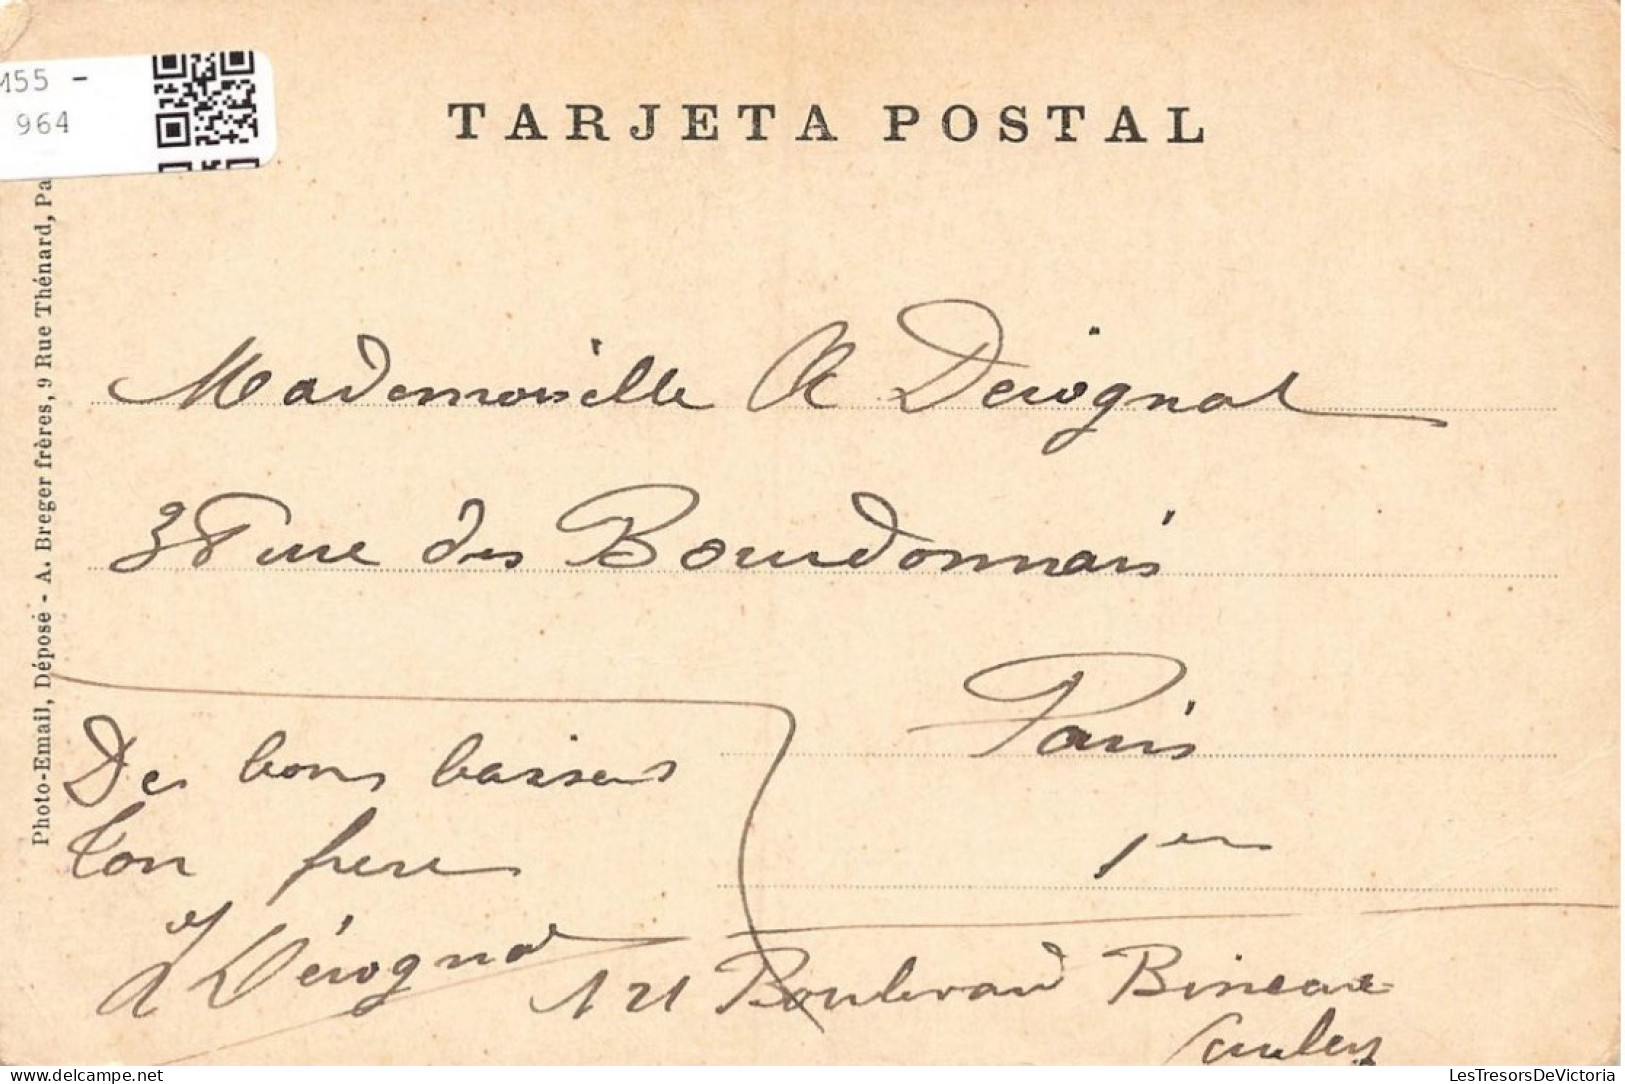 M55 -
964
TARJETA POSTAL
Photo-Email, Déposé - A. Breger frères, 9 Rue Thénard, Pa
Mademoiselle A Derognat
38 rue des Bourdonnais
Paris
1er
Des bons baisers
ton frere
Dérognat
121 Boulevard Bineau
LesTresorsDeVictoria